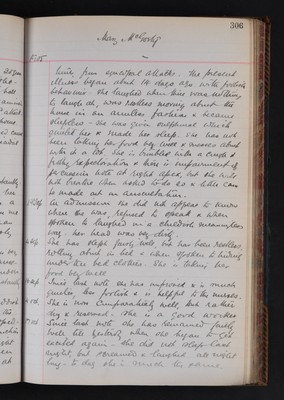 306
Mary McGorlif
F.25
time from epileptiform attacks. The present
illness began about 14 days ago with foolish
behaviour. She laughed when there was nothing
to laugh at, was restless moving about the
house in an aimless fashion & became
sleepless. She was given sulphonal which
quieted her & made her sleep. She has not
been taking her food very well & messes about
with it a lot. She is troubled with a cough &
faulty respiration & there is impairment of
percussion note at right apex, but she will
not breathe when asked to do so & little can
be made out on auscultation.
On admission she did not appear to know
where she was, refused to speak & when
spoken to laughed in a childish meaningless
way. Her head was very
She has slept fairly well, but has been restless,
rolling about in bed & when spoken to hiding
under the bed clothes. She is taking her
food very well
Since last note she has improved & is much
quieter, less foolish & is helpful to the nurses.
She is now comparatively well, but rather
shy & reserved. She is a good worker
Since last note she has remained fairly
well till yesterday when she began to get
excited again. She did not sleep last
night, but screamed & laughed all night
long. To day she is much the same.